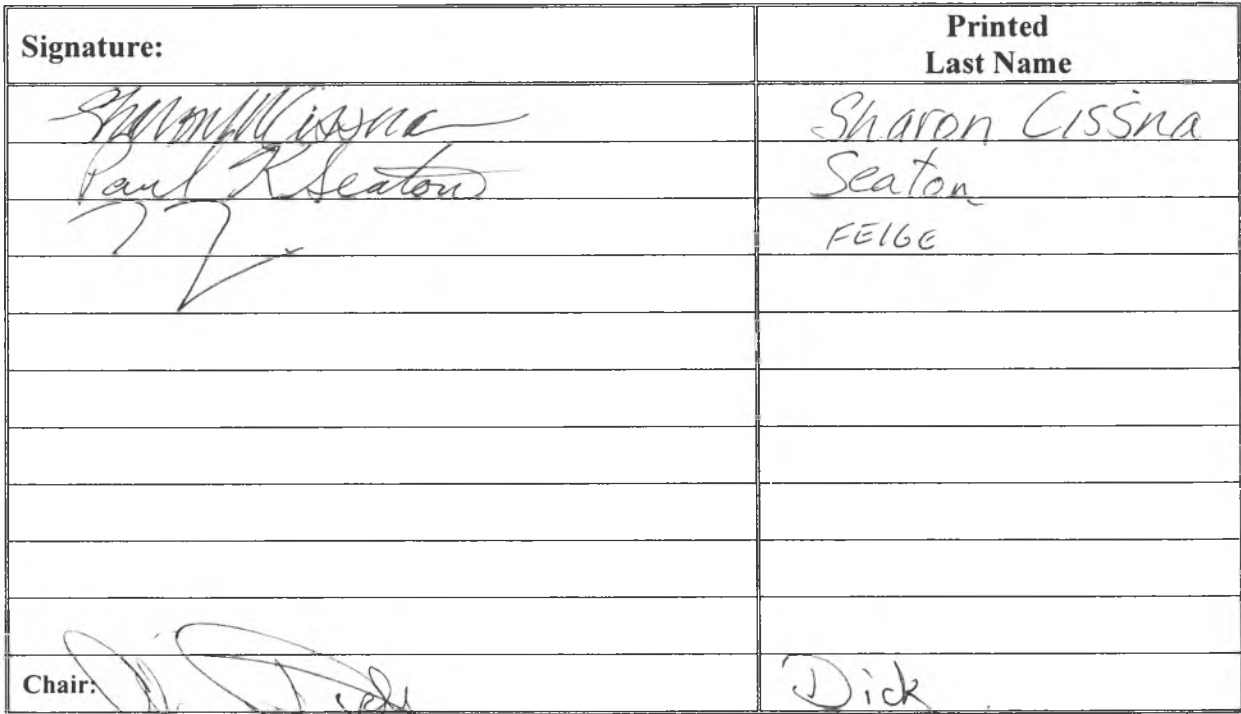 Signature:
Printed
Last Name
Sharon M Cissna
Sharon Cissna
Paul K Seaton
Seaton
FEIGE
Chair:
Dick
Dick